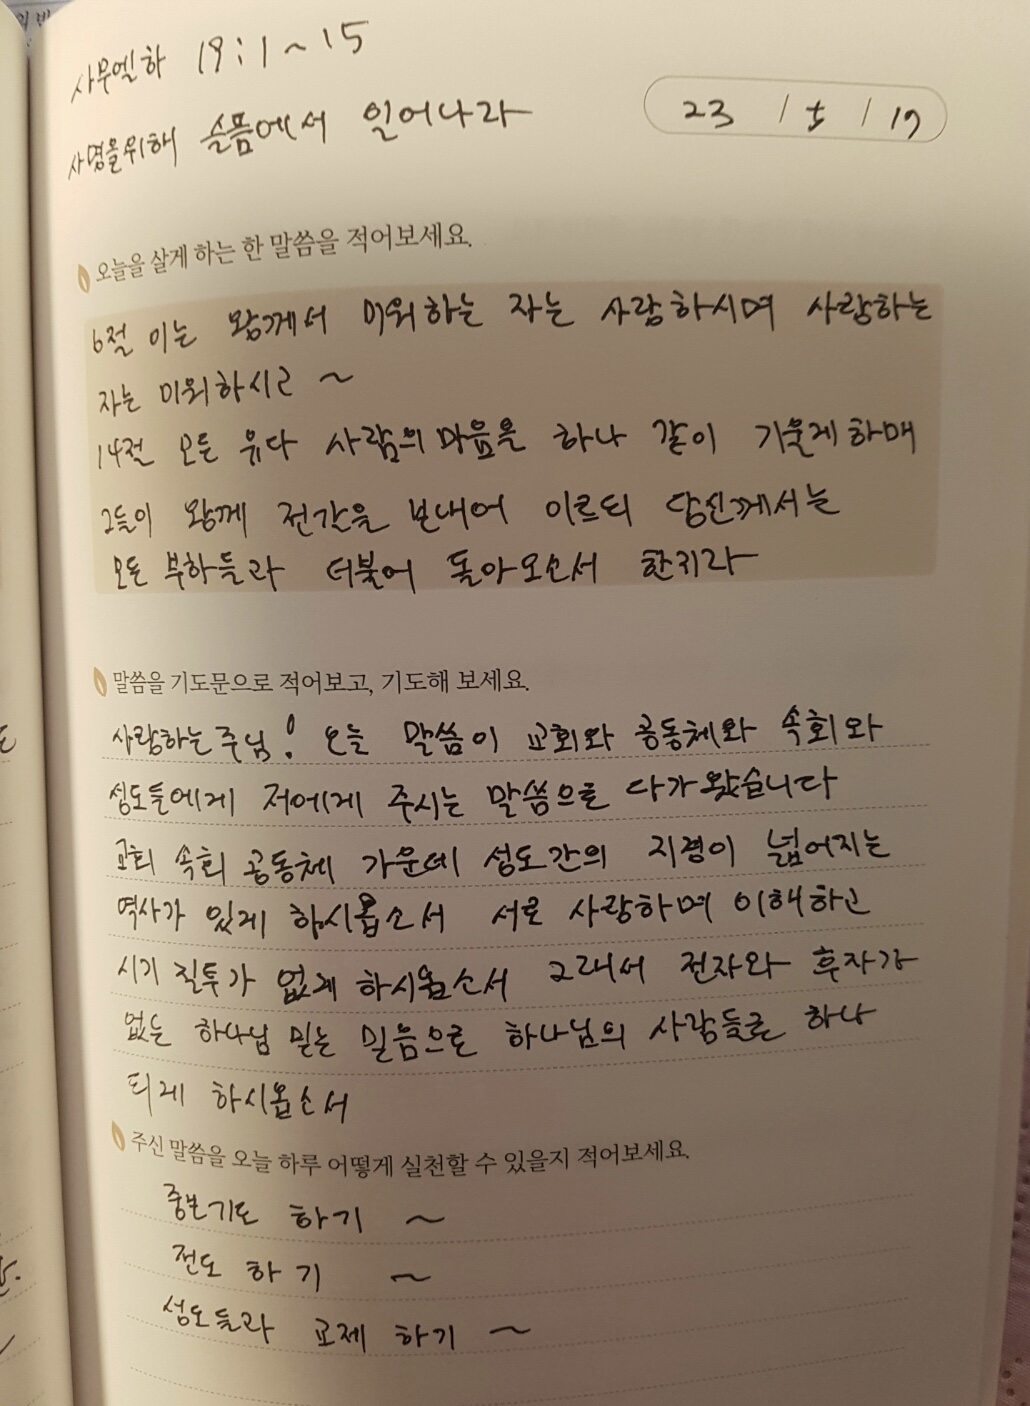 사무엘하 19:1~15
사명을위해 슬픔에서 일어나라
23 / 5 / 19
오늘을 살게 하는 한 말씀을 적어보세요.
6절 이는 왕께서 미워하는 자는 사랑하시며 사랑하는
자는 미워하시고 ~
14절 모든 유다 사람의 마음을 하나 같이 기울게 하매
그들이 왕께 전갈을 보내어 이르되 당신께서는
모든 부하들과 더불어 돌아오소서 한지라
말씀을 기도문으로 적어보고, 기도해 보세요.
사랑하는 주님! 오늘 말씀이 교회와 공동체와 속회와
성도들에게 저에게 주시는 말씀으로 다가 왔습니다
교회 속회 공동체 가운데 성도간의 지경이 넓어지는
역사가 있게 하시옵소서 서로 사랑하며 이해하고
시기 질투가 없게 하시옵소서 그래서 전자와 후자가
없는 하나님 믿는 믿음으로 하나님의 사람들로 하나
되게 하시옵소서
주신 말씀을 오늘 하루 어떻게 실천할 수 있을지 적어보세요.
중보기도 하기 ~
전도 하기 ~
성도들과 교제 하기 ~